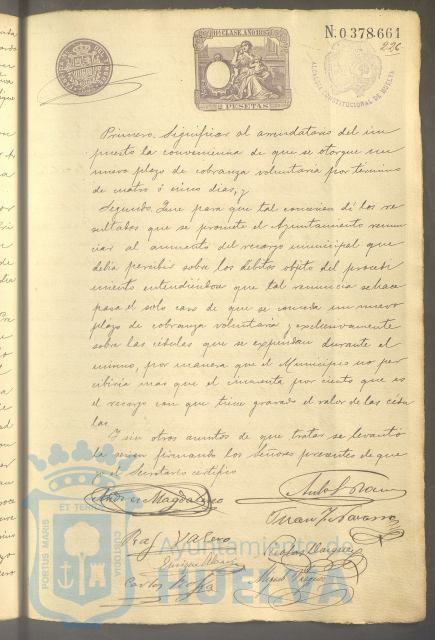 11ª CLASE. AÑO 1897
N. 0 378.661
226
PESETAS
ALCALDIA CONSTITUCIONAL DE HUELVA
Primero. Significar al arrendatario del im
puesto la conveniencia de que se otorgue un
nuevo plazo de cobranza voluntaria por término
de cuatro ó cinco dias, y
Segundo. Que para que tal concesion dé los re
sultados que se promete el Ayuntamiento renun
ciar al aumento del recargo municipal que
debia percibir sobre los débitos objeto del procedi
miento entendiendose que tal renuncia se hace
para el solo caso de que se conceda un nuevo
plazo de cobranza voluntaria y exclusivamente
sobre las cédulas que se expendan durante el
mismo, por manera que el Municipio no per
cibiria mas que el cincuenta por ciento que es
el recargo con que tiene gravado el valor de las cédu
las.
Y sin otros asuntos de que tratar se levantó
la sesion firmando los Señores presentes de que
yo el Secretario certifico
Magdaleno
Juan J. Navarro
Valero
Rafael Vazquez
Enrique
Carlos
Miguel
PORTUS MARIS
ET TERRAE
CUSTODIA
Ayuntamiento de
HUELVA